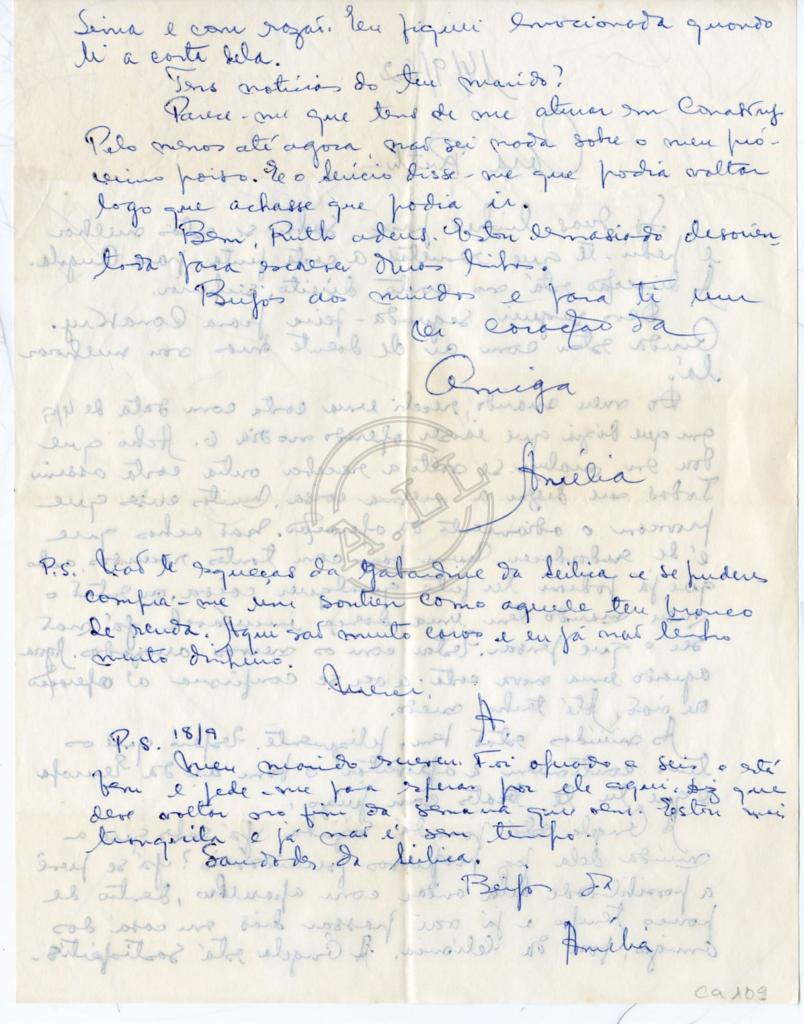 e com razão. Eu fiquei emocionada quando
li a carta dela.
Tens notícias do teu marido?
Parece-me que tens de me aturar em Conakry.
Pelo menos até agora não sei nada sobre o meu pró-
ximo poiso. E o Lúcio disse-me que podia voltar
logo que achasse que podia ir.
Bem, Ruth adeus. Estou demasiado desorien-
tada para escrever duas linhas.
Beijos aos miudos e para ti um
coração da
Amiga
Amélia
A.LL
P.S. Não te esqueças da gabardine da e se puderes
compra-me um soutien como aquele teu branco
de renda. Aqui são muito caros e eu já não tenho
muito dinheiro.
Merci.
A
P.S. 18/9
Meu marido escreveu. Foi operado a seis e está
bem e pede-me para esperar por ele aqui. Diz que
deve voltar no fim da semana que vem. Estou mais
tranquila e já não é sem tempo.
Saudades da
Beijos da
Amélia
CA 109